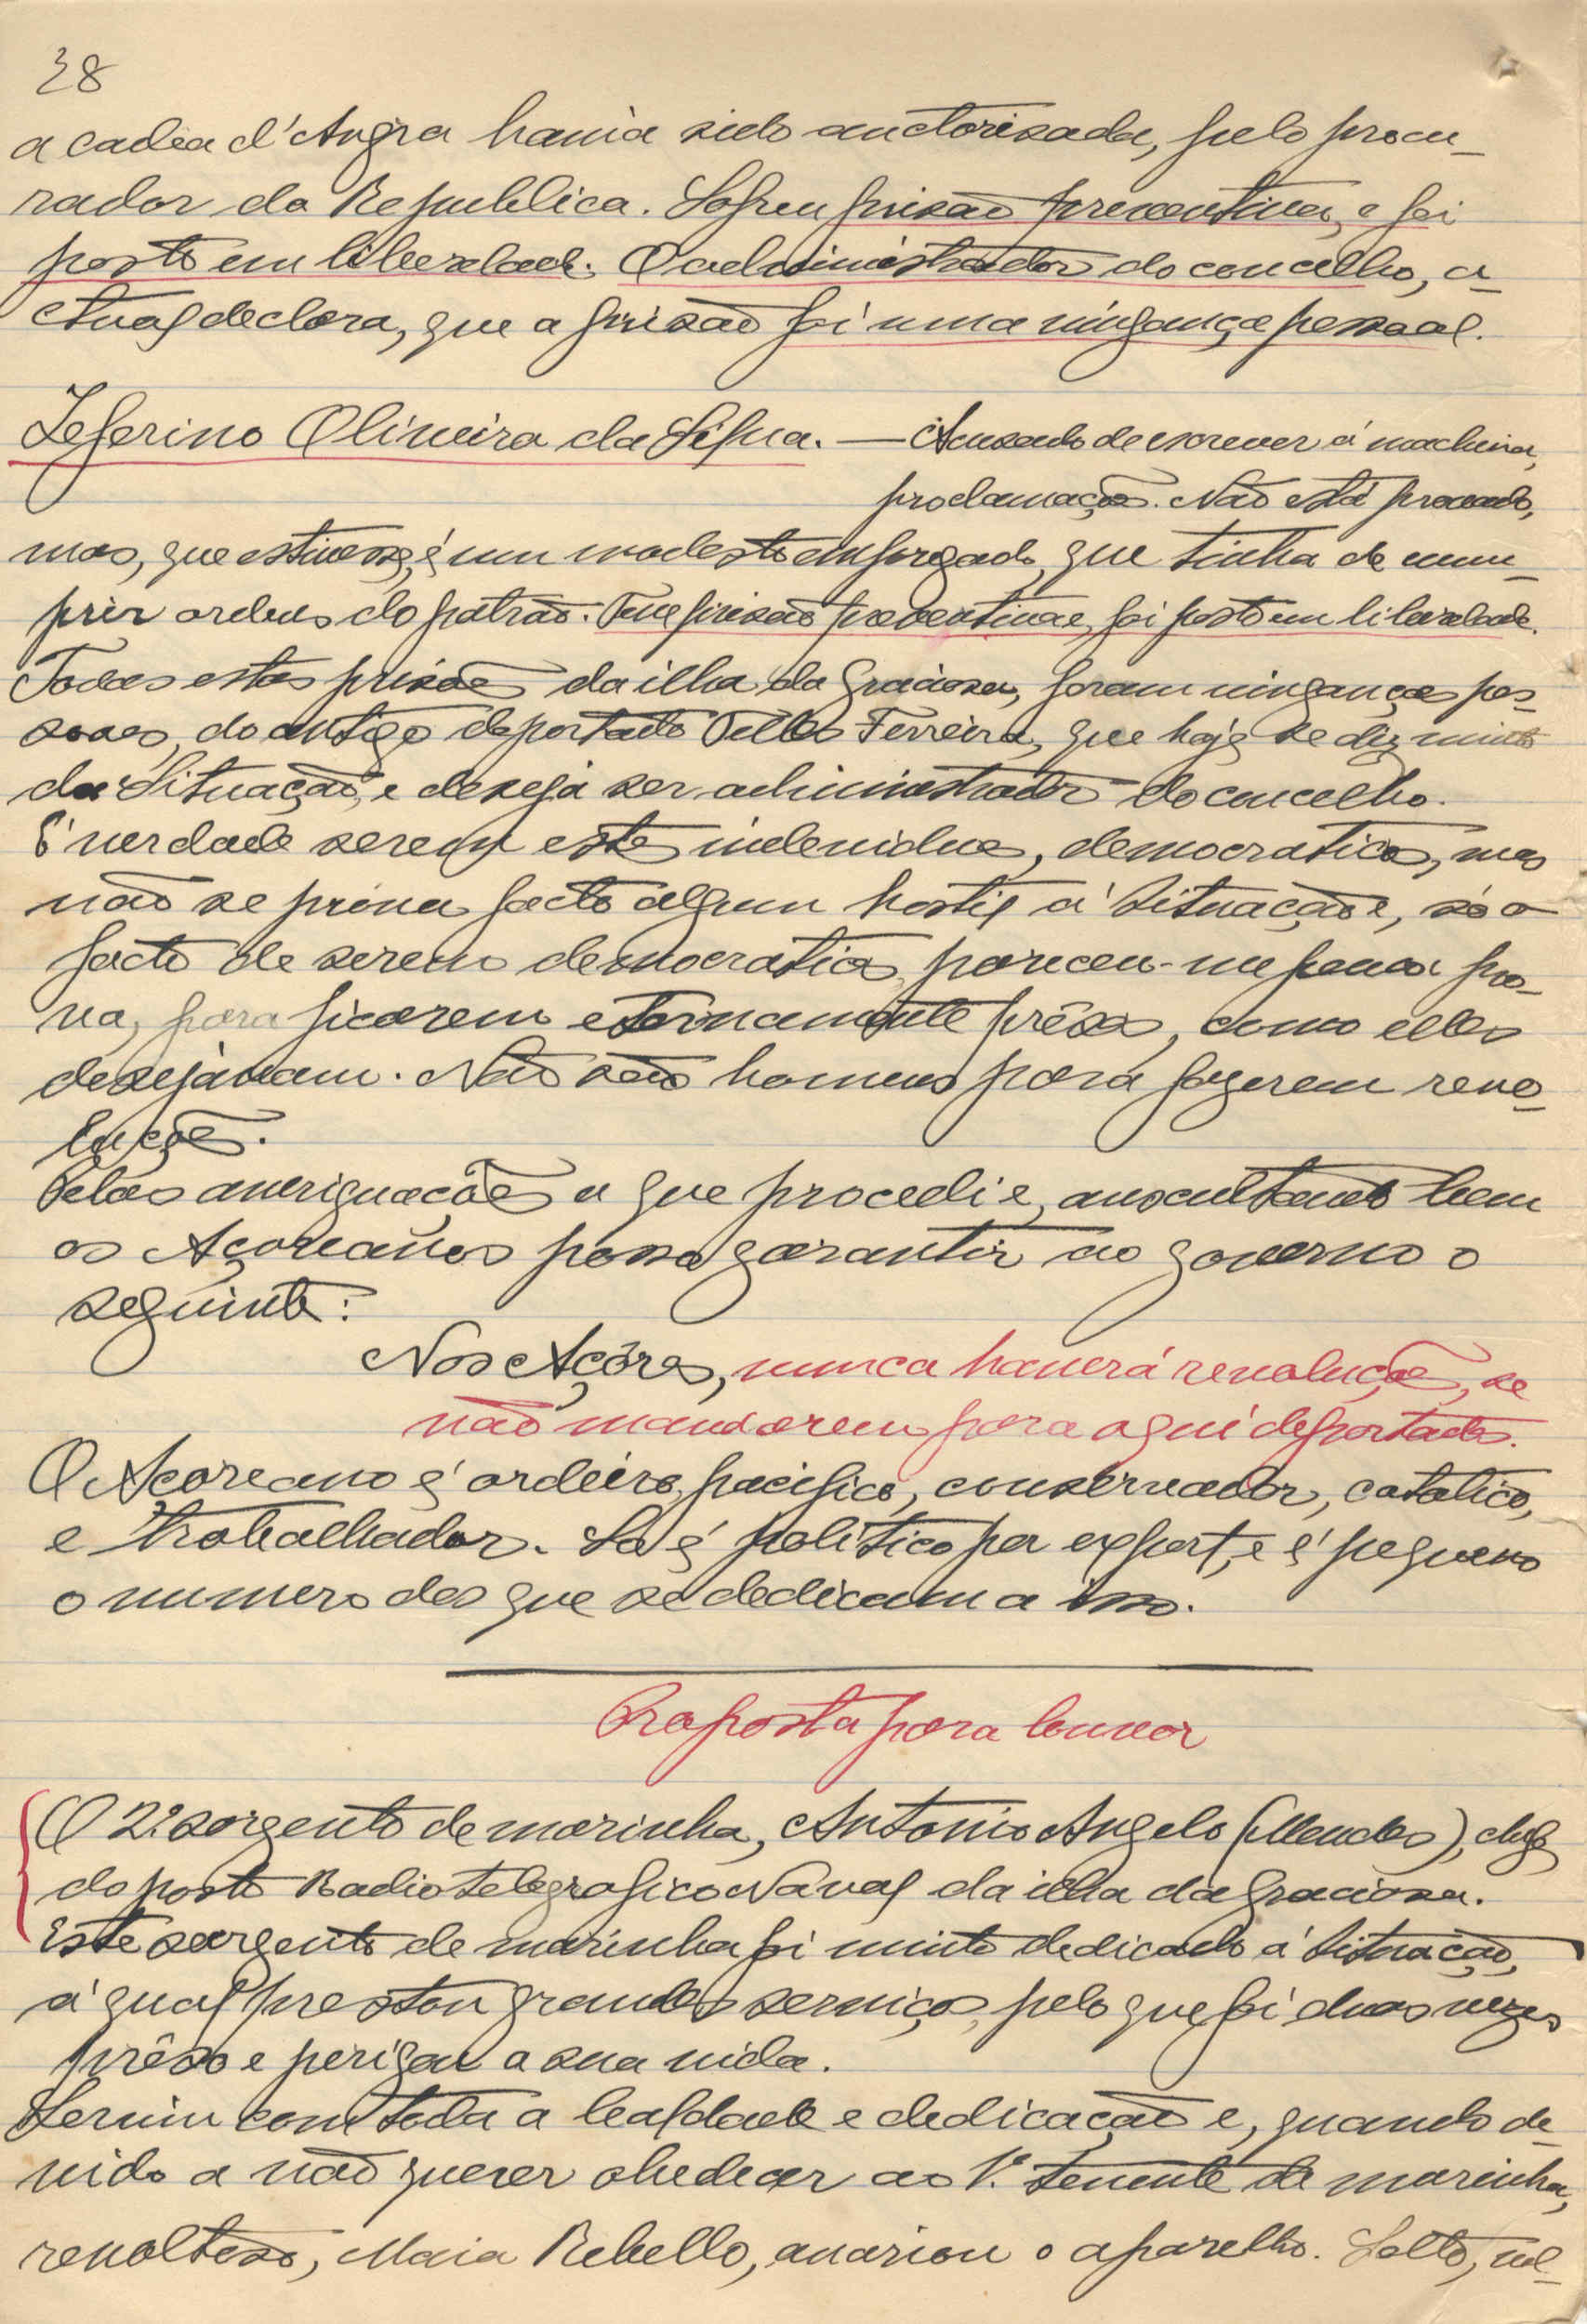 38
a cadea d'Angra havia sido auctorisada, pelo procu-
rador da Republica. Sofreu prisão preventiva, e foi
posto em liberdade. O administrador do concelho, a-
ctual declara, que a prisão foi uma vingança pessoal.
Zeferino Oliveira da Silva. — Acusado de escrever á machina,
proclamações. Não está provado,
mas, que estivesse, é um modesto empregado, que tinha de cum-
prir ordens do patrão. Teve prisão preventiva e, foi posto em liberdade.
Todas estas prisões da ilha da Graciosa, foram vinganças pes-
soaes, do antigo deportado Telles Ferreira, que hoje se diz muito
da Situação, e deseja ser administrador do concelho.
É verdade serem estes individuos, democraticos, mas
não se prova facto algum hostil á Situação e, só o
facto de serem democraticos, pareceu-me pouca pro-
va, para ficarem eternamente prêsos, como elles
desejávam. Não são homens para fazerem revo-
luções.
Pelas averiguacões a que procedi e, auscultando bem
os Açoreanos posso garantir ao governo o
seguinte:
Nos Açôres, nunca haverá revoluções, se
não mandarem para aqui deportados.
O Açoreano é ordeiro, pacifico, conservador, catolico,
e trabalhador. Só é politico por export, e é pequeno
o numero dos que se dedicam a isso.
Proposta para louvor
O 2º sargento de marinha, Antonio Angelo (Mendes), chefe
do posto Radio telegrafico Naval da ilha da Graciosa.
Este sargento de marinha foi muito dedicado á Situação,
á qual prestou grandes serviços, pelo que foi duas vezes
prêso e perigou a sua vida.
Serviu com toda a lealdade e dedicação e, quando de-
vido a não querer obedecer ao 1º tenente de marinha,
revoltoso, Maia Rebello, avariou o aparelho. Solto, vol-